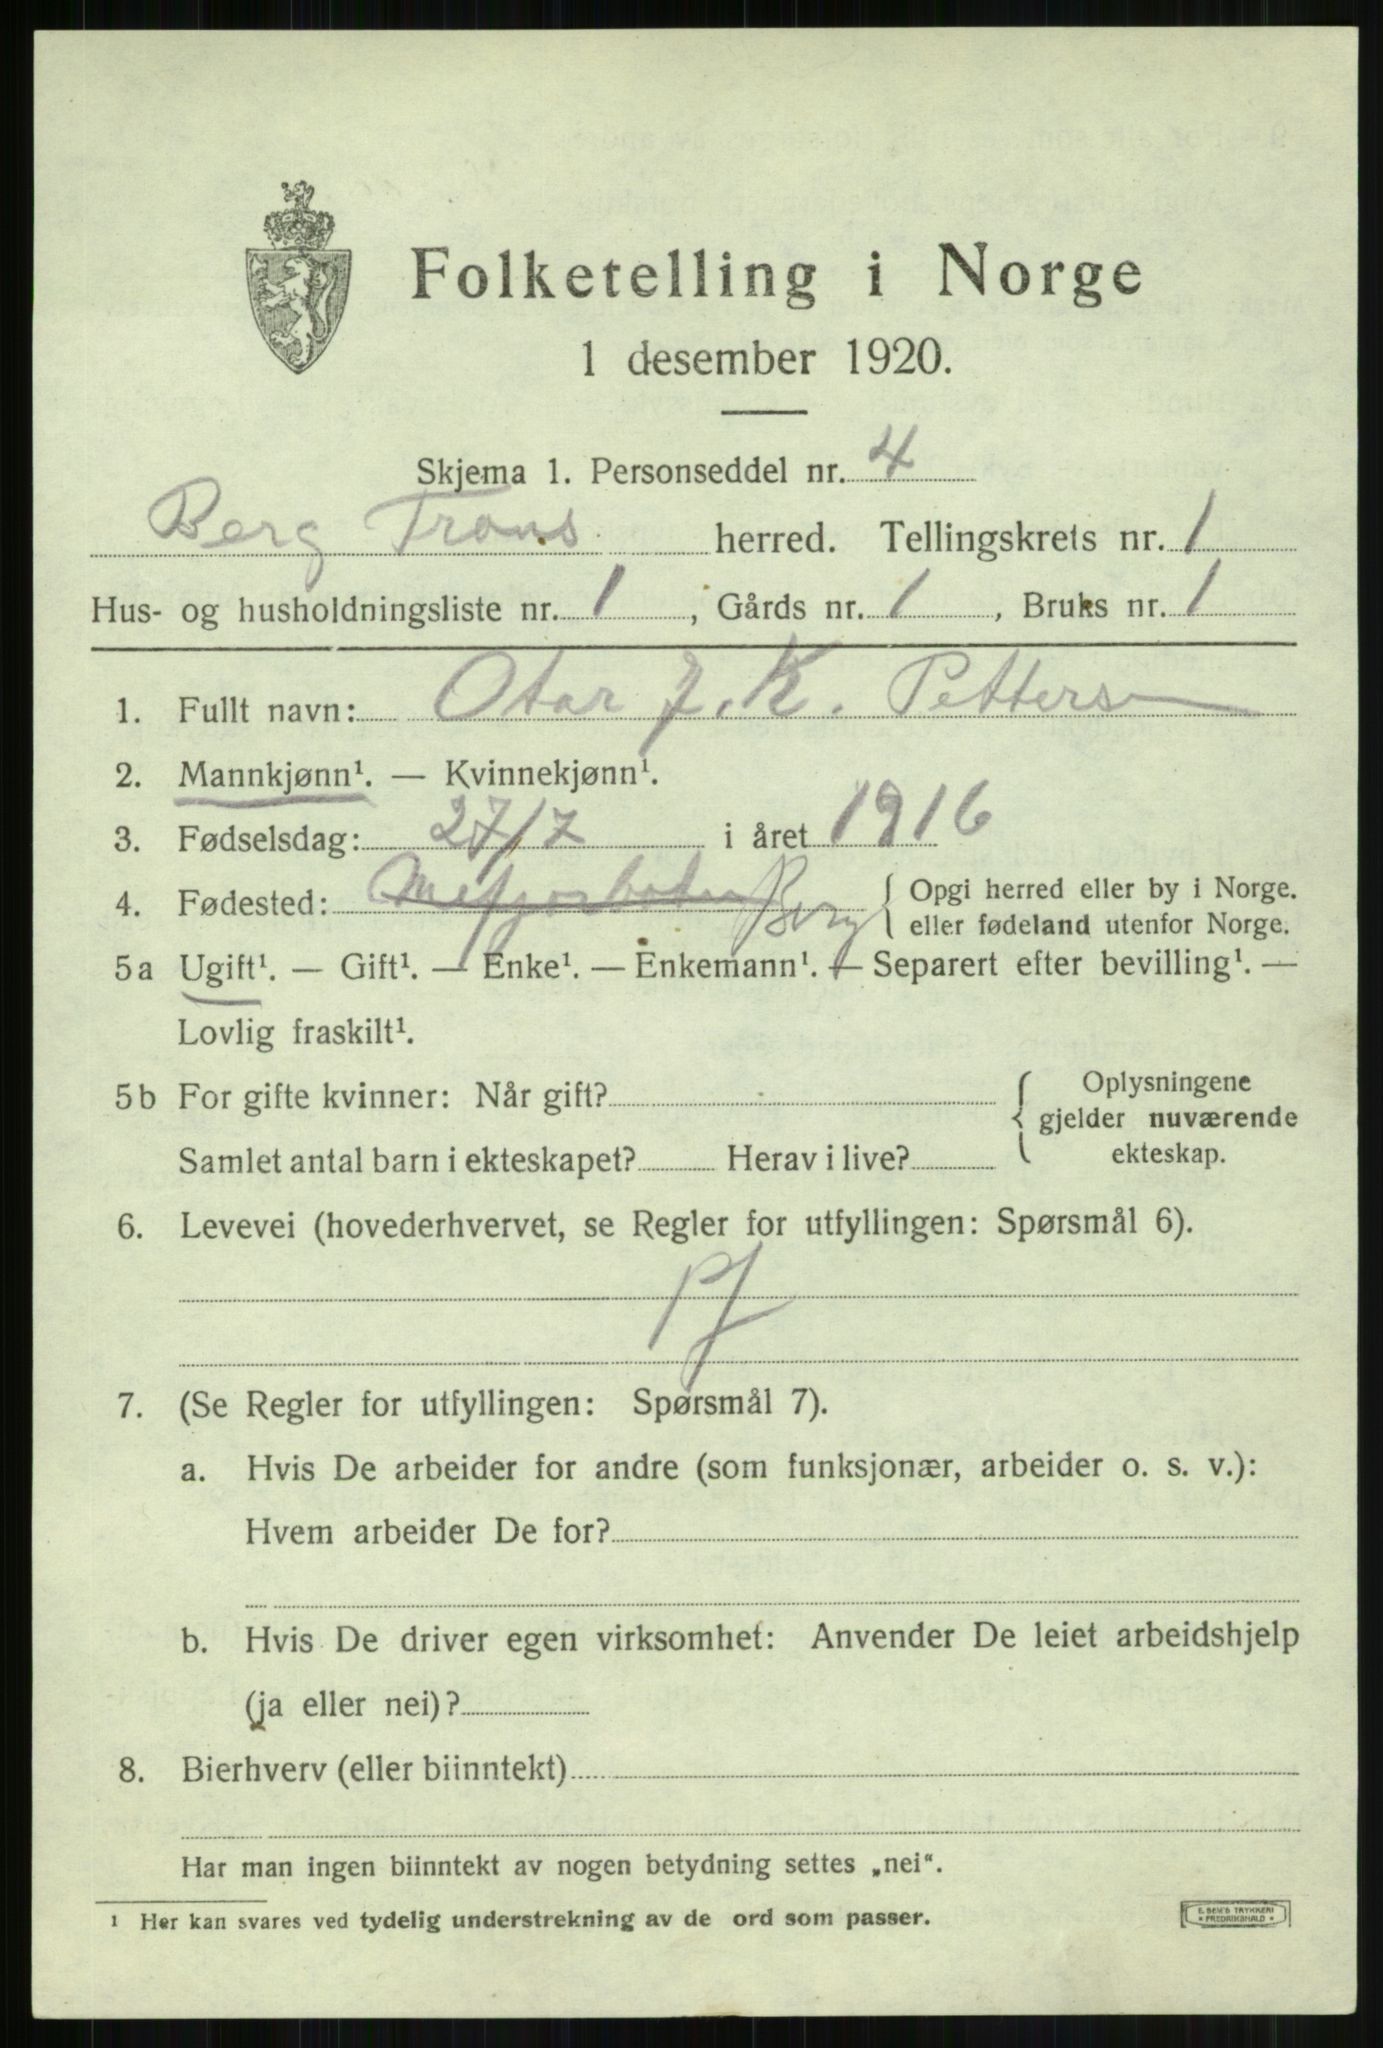 Folketelling i Norge
1 desember 1920.
Skjema 1. Personseddel nr. 4
Berg Troms herred. Tellingskrets nr. 1
Hus- og husholdningsliste nr. 1, Gårds nr. 1, Bruks nr. 1
1. Fullt navn: Otar J. K. Pettersen
2. Mannkjønn¹. — Kvinnekjønn¹.
3. Fødselsdag: 27/7 i året 1916
4. Fødested: Mefjorbotn Berg { Opgi herred eller by i Norge.
eller fødeland utenfor Norge.
5a Ugift¹. — Gift¹. — Enke¹. — Enkemann¹. — Separert efter bevilling¹. —
Lovlig fraskilt¹.
5b For gifte kvinner: Når gift? { Oplysningene
gjelder nuværende
Samlet antal barn i ekteskapet? Herav i live? ekteskap.
6. Levevei (hovederhvervet, se Regler for utfyllingen: Spørsmål 6).
7. (Se Regler for utfyllingen: Spørsmål 7).
a. Hvis De arbeider for andre (som funksjonær, arbeider o. s. v.):
Hvem arbeider De for?
b. Hvis De driver egen virksomhet: Anvender De leiet arbeidshjelp
(ja eller nei)?
8. Bierhverv (eller biinntekt)
Har man ingen biinntekt av nogen betydning settes „nei“.
¹ Her kan svares ved tydelig understrekning av de ord som passer.
E. SEM'S TRYKKERI
FREDRIKSHALD